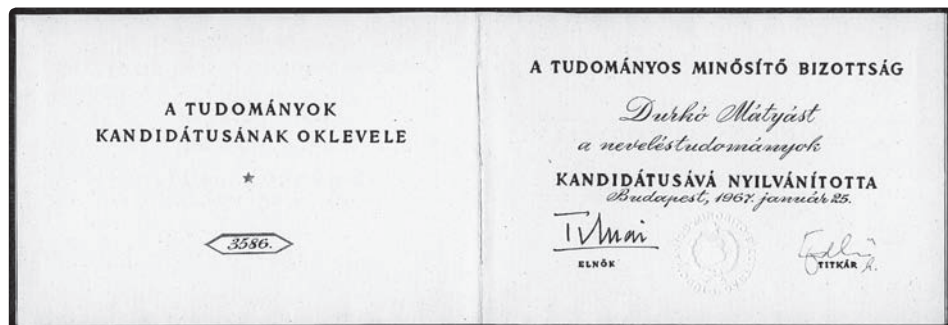 A TUDOMÁNYOK
KANDIDÁTUSÁNAK OKLEVELE
3586.
A TUDOMÁNYOS MINŐSÍTŐ BIZOTTSÁG
Durkó Mátyást
a neveléstudományok
KANDIDÁTUSÁVÁ NYILVÁNÍTOTTA
Budapest, 1967. január 25.
ELNÖK
TITKÁR